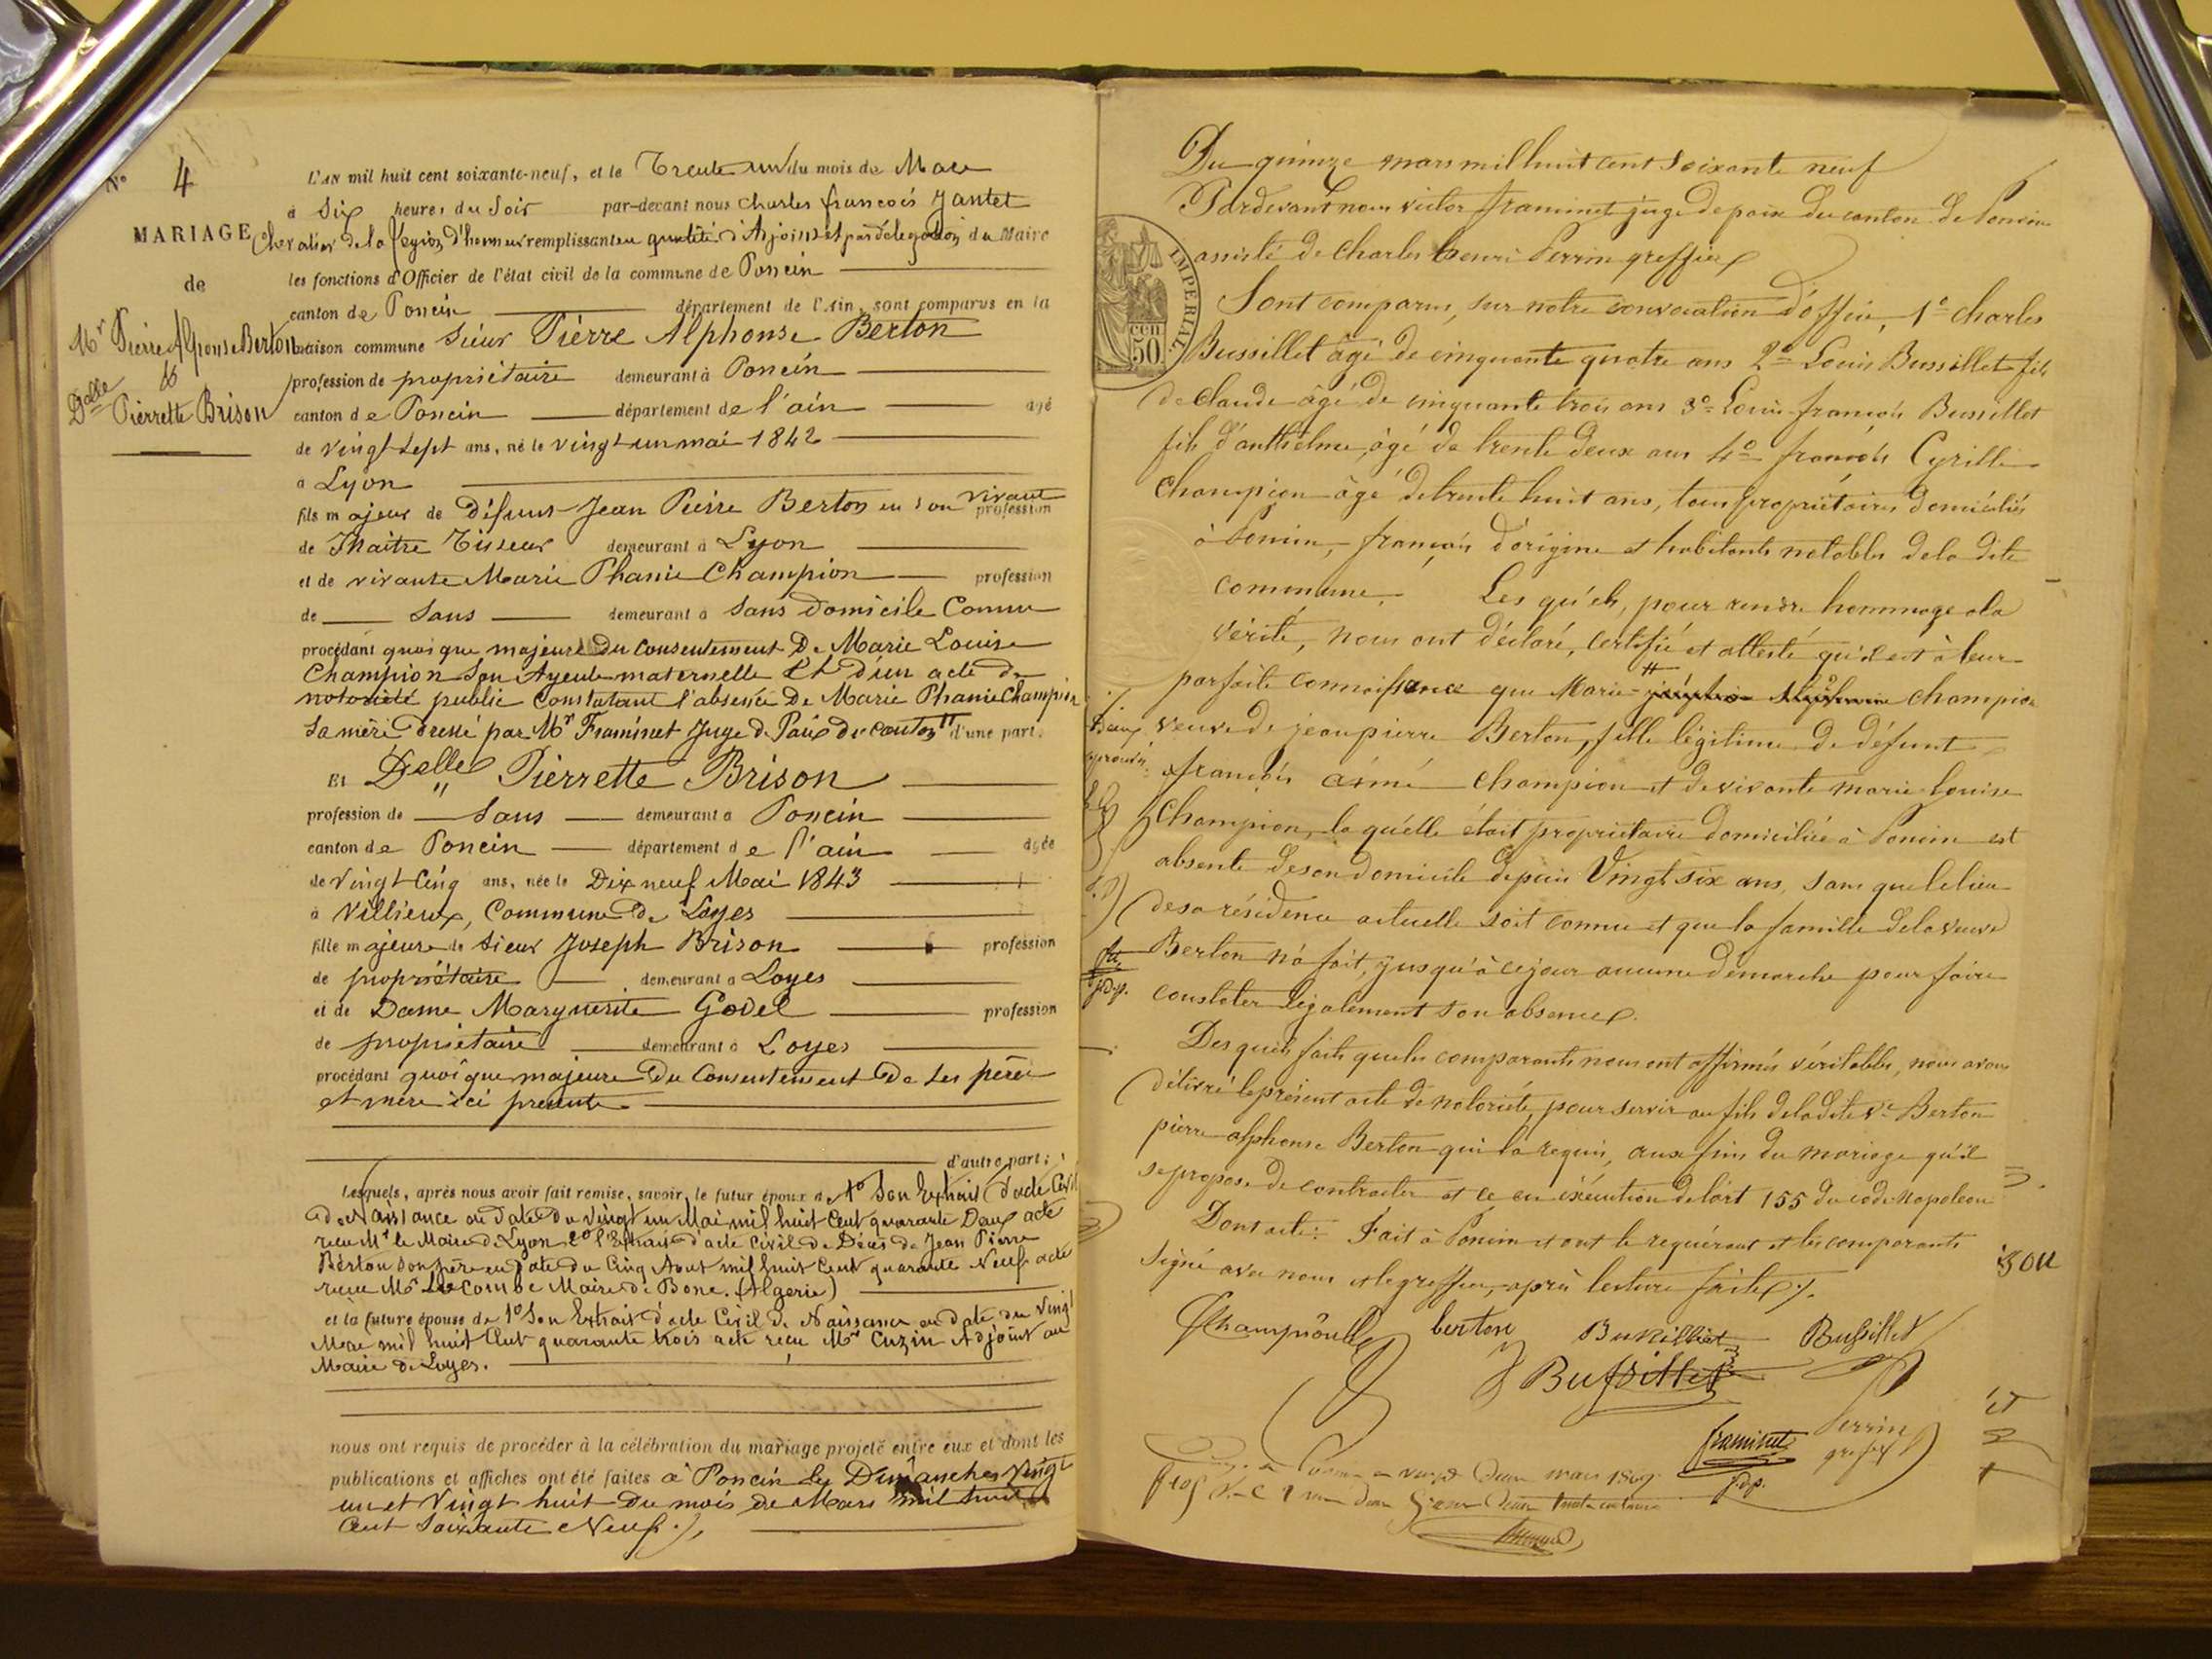 N° 4
MARIAGE
de
Mr Pierre Alponse Berton
&
Delle Pierrette Brison
L'AN mil huit cent soixante-neuf, et le Trente un du mois de Mars
à Six heures du Soir par-devant nous Charles françois Jantet
Chevalier de la Legion d'honneur remplissant en qualité d'Adjoint et par délégation du Maire
les fonctions d'Officier de l'état civil de la commune de Poncin
canton de Poncin département de l'Ain, sont comparus en la
maison commune Sieur Pierre Alphonse Berton
profession de propriétaire demeurant à Poncin
canton de Poncin département de l'ain agé
de vingt sept ans, né le vingt un mai 1842
à Lyon
fils majeur de défunt Jean Pierre Berton en son vivant profession
de Maitre Tisseur demeurant à Lyon
et de vivante Marie Phanie Champion profession
de Sans demeurant à Sans domicile Connu
procédant quoique majeur Du Consentement De Marie Louise
Champion Son Ayeule maternelle Et d'un acte de
notoriété public Constatant l'absence De Marie Phanie Champion
Sa mère Dressé par Mr Framinet Juge de Paix du canton d'une part.
Et Delle Pierrette Brison
profession de Sans demeurant à Poncin
canton de Poncin département de l'ain agée
de Vingt Cinq ans, née le Dix neuf Mai 1843
à Villieux, Commune de Loyes
fille majeure de Sieur Joseph Brison profession
de propriétaire demeurant à Loyes
et de Dame Marguerite Godel profession
de propriétaire demeurant à Loyes
procédant quoique majeure Du Consentement De Ses père
et mère ici présents
d'autre part;
Lesquels, après nous avoir fait remise, savoir, le futur époux de 1° Son Extrait d'acte Civil
de Naissance en date du vingt un Mai mil huit Cent quarante Deux acte
reçu Mr le Maire de Lyon 2° l'Extrait d'acte Civil de Décès de Jean Pierre
Berton son père en date du Cinq Aout mil huit Cent quarante Neuf acte
reçu Mr Lacombe Maire de Bone. (Algerie)
et la future épouse de 1° Son Extrait d'acte Civil de Naissance en date du Vingt
Mai mil huit Cent quarante trois acte reçu Mr Cuzin Adjoint au
Maire de Loyes.
nous ont requis de procéder à la célébration du mariage projeté entre eux et dont les
publications et affiches ont été faites à Poncin les Dimanches Vingt
un et Vingt huit du mois de Mars mil huit
Cent Soixante Neuf./.
Du quinze mars mil huit cent soixante neuf
Pardevant nous victor framinet juge de paix du canton de Poncin
assisté de Charles henri Perrin greffier
IMPERIAL
CEN
50
Sont comparus, sur notre convocation d'office, 1° Charles
Bussillet âgé de cinquante quatre ans 2° Louis Bussillet fils
de Claude âgé de cinquante trois ans 3° Louis françois Bussillet
fils d'anthelme, âgé de trente deux ans 4° françois Cyrille
Champion âgé de trente huit ans, tous propriétaires domiciliés
à Poncin, français d'origine et habitants notables de la dite
commune. Les quels, pour rendre hommage à la
vérité, nous ont déclaré, certifié et attesté qu'il est à leur
parfaite connaissance que Marie champion
veuve de jean pierre Berton, fille légitime de défunt
françois aimé champion et de vivante marie Louise
Champion, la quelle était propriétaire domiciliée à Poncin est
absente de son domicile depuis Vingt six ans, sans que le lieu
de sa résidence actuelle soit connu et que la famille de la veuve
Berton n'a fait, jusqu'à ce jour aucune démarche pour faire
constater légalement son absence.
j.d.p.
Des quels faits que les comparants nous ont affirmés véritables, nous avons
délivré le présent acte de notoriété, pour servir au fils de la dite Ve Berton
pierre alphonse Berton qui l'a requis, aux fins du mariage qu'il
se propose de contracter et ce en exécution de l'art 155 du code Napoléon
Dont acte: Fait à Poncin et ont le requérant et les comparants
signé avec nous et le greffier, après lecture faite./.
Champion berton Bussilliet Bussillet
Bussillet
framinet
j.d.p.
Perrin
greffier
vingt deux mars 1869